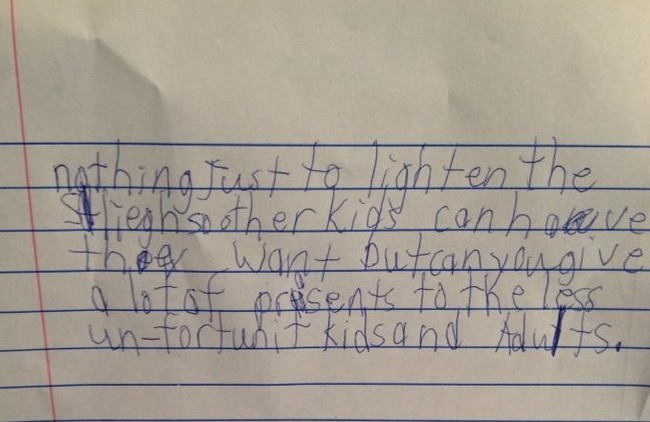 nothing Just to lighten the
Sliegh so other kids can have
they want but can you give
a lot of prisents to the less
un-fortunit kids and Adults.